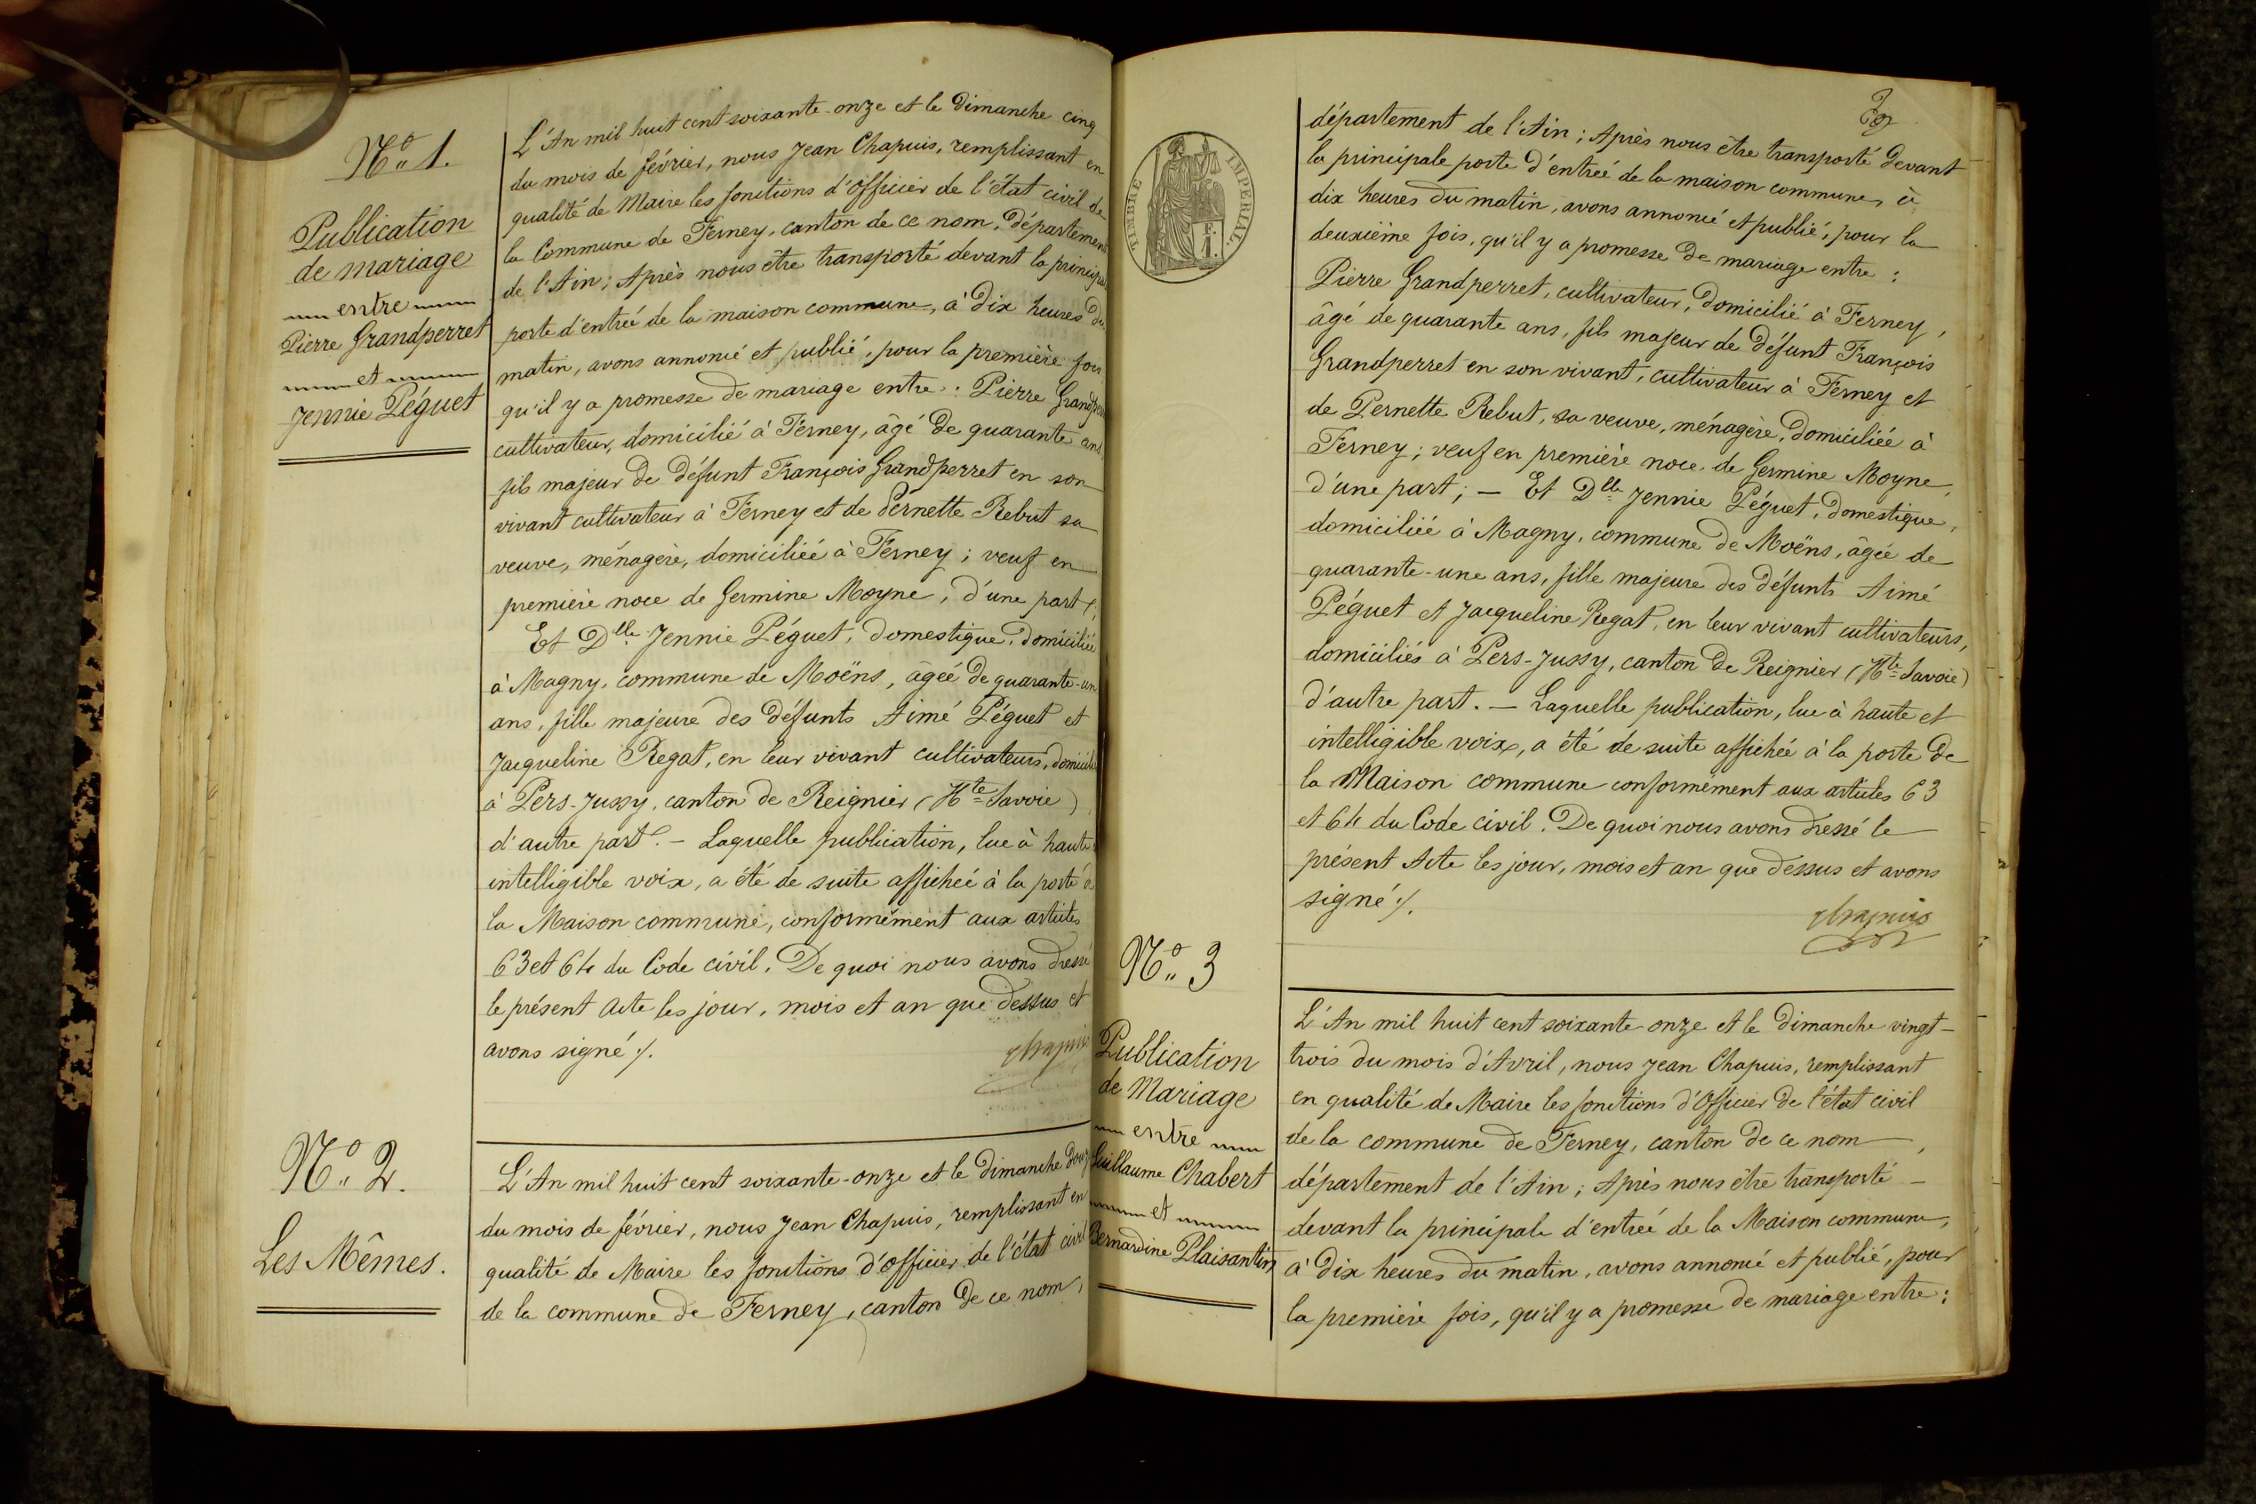 N° 1.
Publication
de mariage
entre
Pierre Grandperret
et
Jennie Péguet
L'An mil huit cent soixante-onze et le Dimanche cinq
du mois de février, nous Jean Chapuis, remplissant en
qualité de Maire les fonctions d'Officier de l'état civil de
la Commune de Ferney, canton de ce nom, département
de l'Ain; Après nous être transporté devant la principale
porte d'entrée de la maison commune, à Dix heures du
matin, avons annoncé et publié, pour la première fois
qu'il y a promesse de mariage entre : Pierre Grandperret
cultivateur, domicilié à Ferney, âgé de quarante ans,
fils majeur de défunt François Grandperret en son
vivant cultivateur à Ferney et de Pernette Rebut sa
veuve, ménagère, domiciliée à Ferney ; veuf en
première noce de Germine Moyne, d'une part;
Et Dlle Jennie Péguet, domestique, domiciliée
à Magny, commune de Moëns, âgée de quarante-un
ans, fille majeure des défunts Aimé Péguet et
Jacqueline Regat, en leur vivant cultivateurs, domiciliés
à Pers-Jussy, canton de Reignier (Hte Savoie)
d'autre part. – Laquelle publication, lue à haute
intelligible voix, a été de suite affichée à la porte de
la Maison commune, conformément aux articles
63 et 64 du Code civil. De quoi nous avons dressé
le présent Acte les jour, mois et an que dessus et
avons signé ./.
Chapuis
N° 2.
Les Mêmes.
L'An mil huit cent soixante-onze et le Dimanche douze
du mois de février, nous Jean Chapuis, remplissant en
qualité de Maire les fonctions d'officier de l'état civil
de la commune de Ferney, canton de ce nom,
TIMBRE IMPERIAL.
1 F.
département de l'Ain ; Après nous être transporté devant
la principale porte d'entrée de la maison commune, à
dix heures du matin, avons annoncé et publié, pour la
deuxième fois, qu'il y a promesse de mariage entre :
Pierre Grandperret, cultivateur, domicilié à Ferney,
âgé de quarante ans, fils majeur de défunt François
Grandperret en son vivant, cultivateur à Ferney et
de Pernette Rebut, sa veuve, ménagère, domiciliée à
Ferney ; veuf en première noce de Germine Moyne,
d'une part ; — Et Dlle Jennie Péguet, domestique,
domiciliée à Magny, commune de Moëns, âgée de
quarante-une ans, fille majeure des défunts Aimé
Péguet et Jacqueline Regat, en leur vivant cultivateurs,
domiciliés à Pers-Jussy, canton de Reignier (Hte Savoie)
d'autre part. — Laquelle publication, lue à haute et
intelligible voix, a été de suite affichée à la porte de
la Maison commune conformément aux articles 63
et 64 du Code civil. De quoi nous avons dressé le
présent Acte les jour, mois et an que dessus et avons
signé ./.
Chapuis
N° 3
Publication
de Mariage
entre
Guillaume Chabert
et
Bernardine Plaisantin
L'An mil huit cent soixante-onze et le Dimanche vingt-
trois du mois d'Avril, nous Jean Chapuis, remplissant
en qualité de Maire les fonctions d'Officier de l'état civil
de la commune de Ferney, canton de ce nom,
département de l'Ain ; Après nous être transporté –
devant la principale d'entrée de la Maison commune,
à Dix heures du matin, avons annoncé et publié, pour
la première fois, qu'il y a promesse de mariage entre :